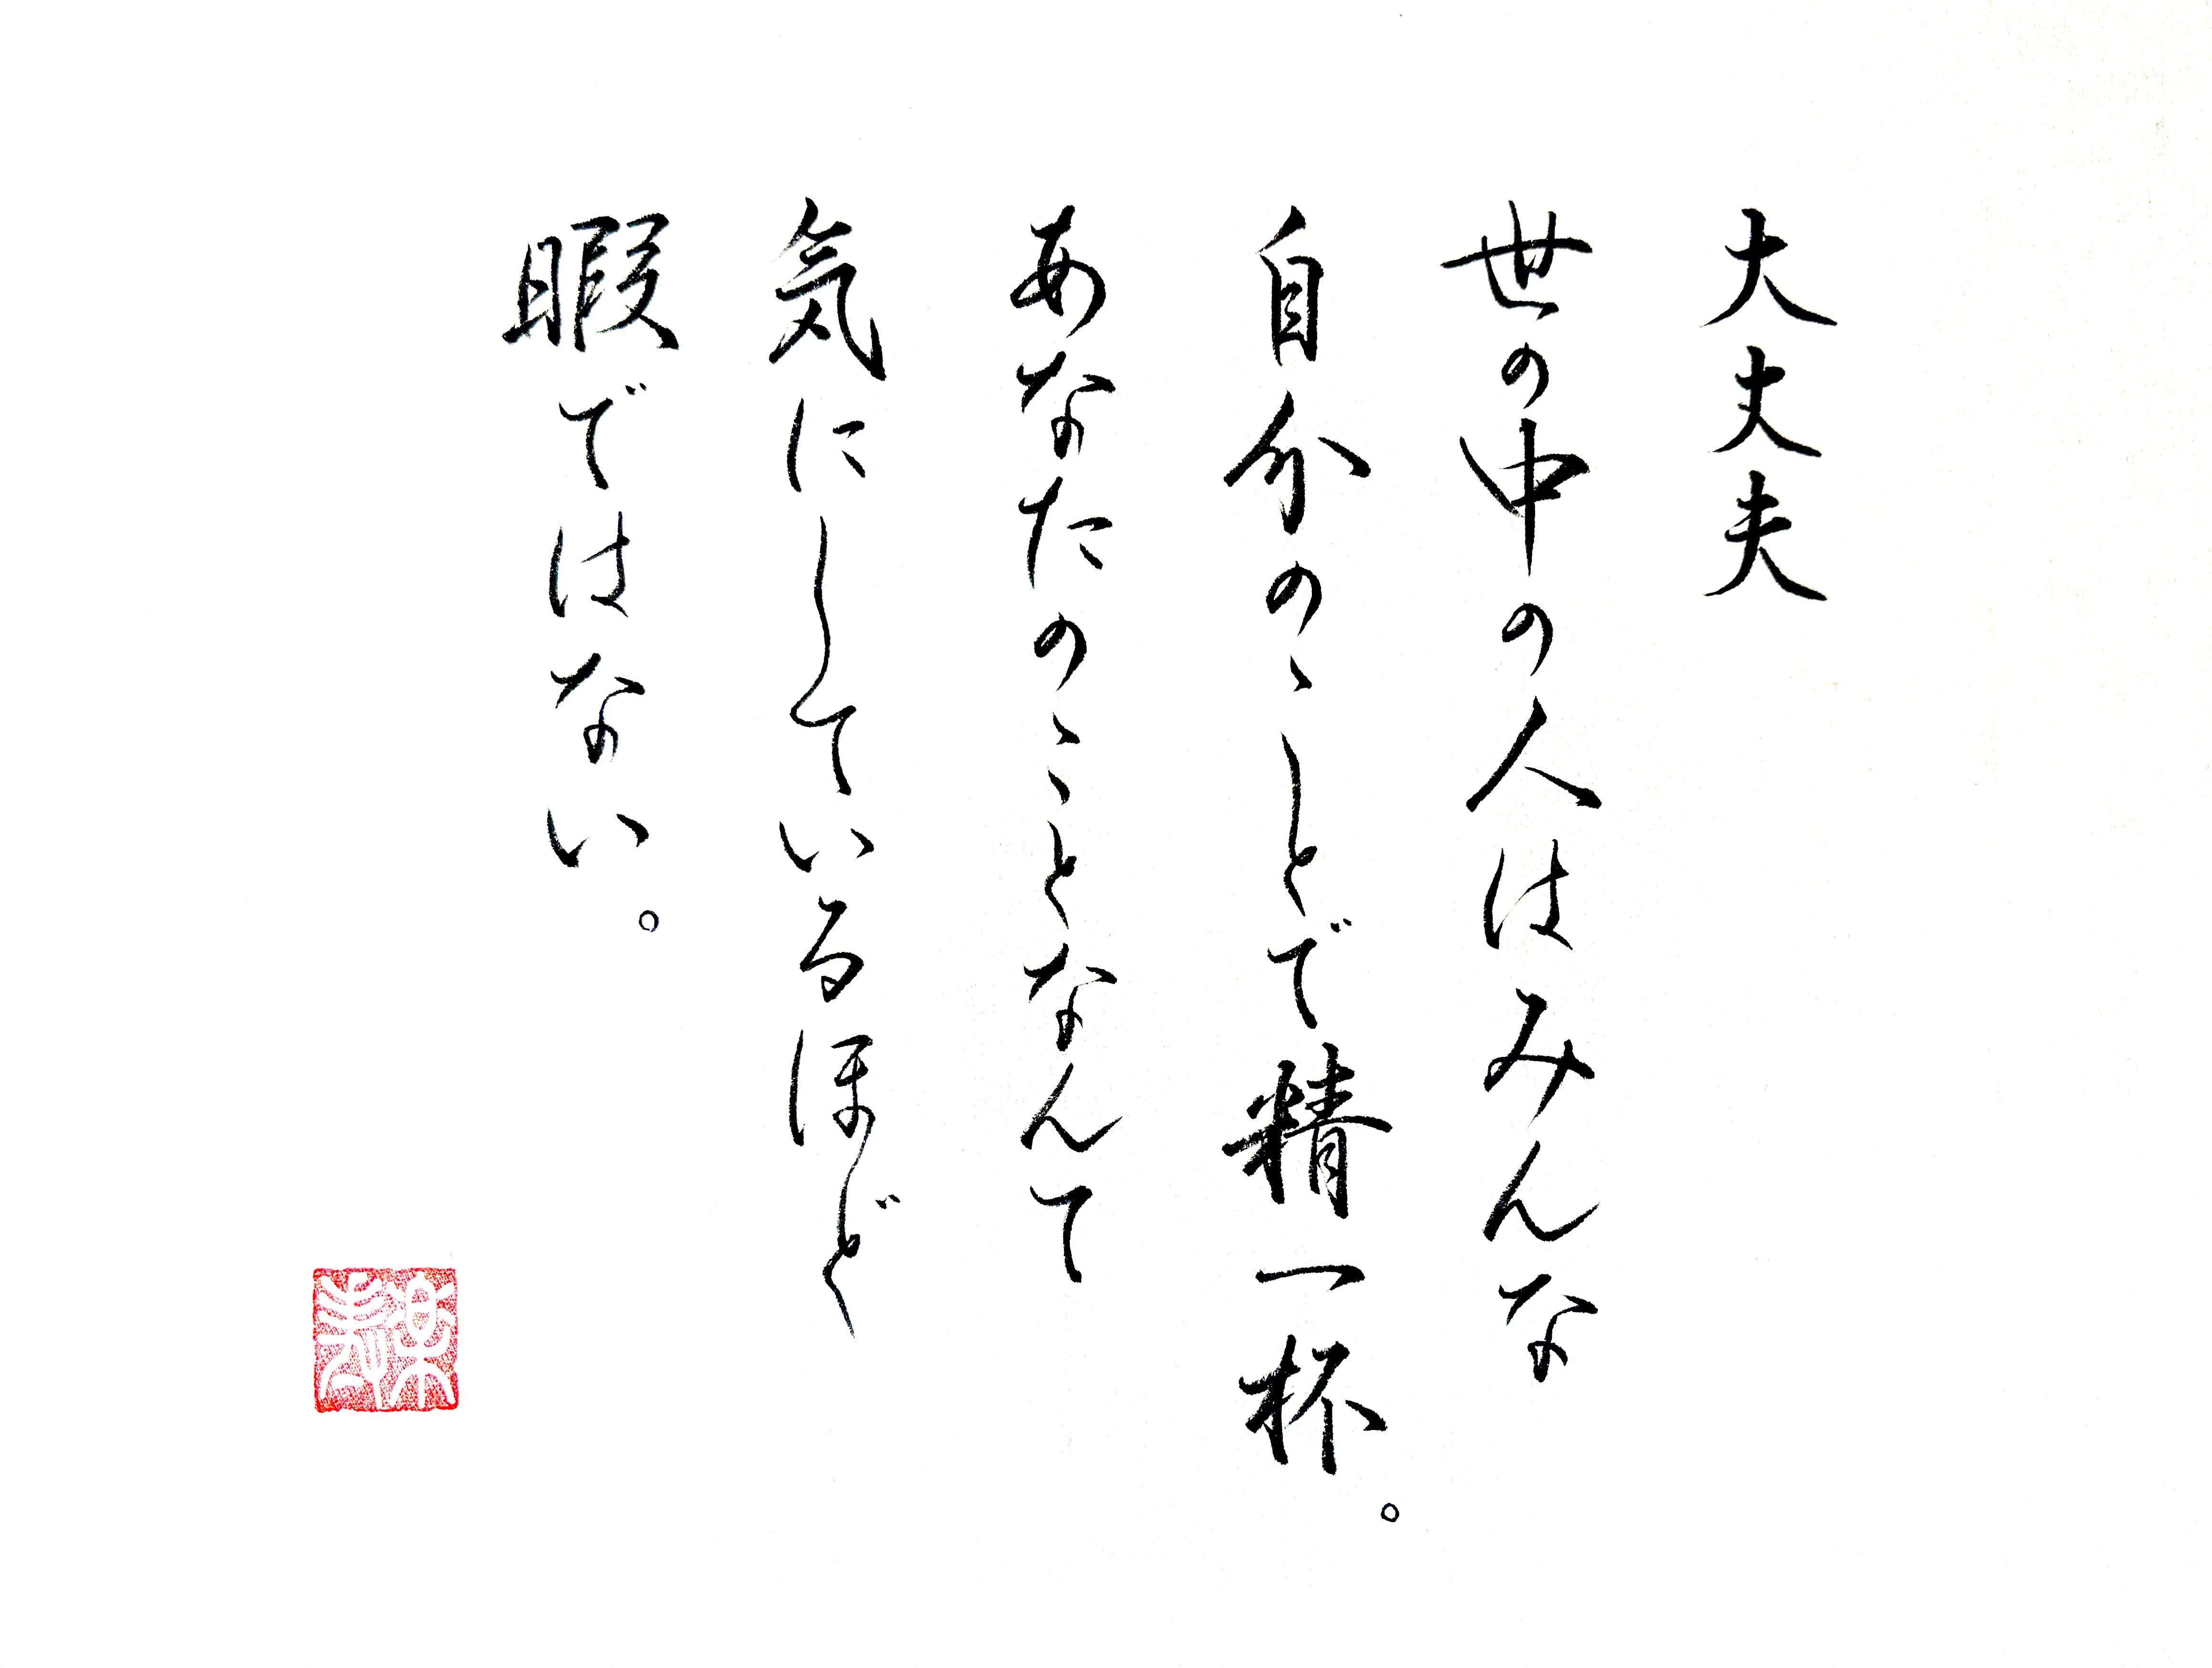 大丈夫
世の中の人はみんな
自分のことで精一杯。
あなたのことなんて
気にしているほど
暇ではない。